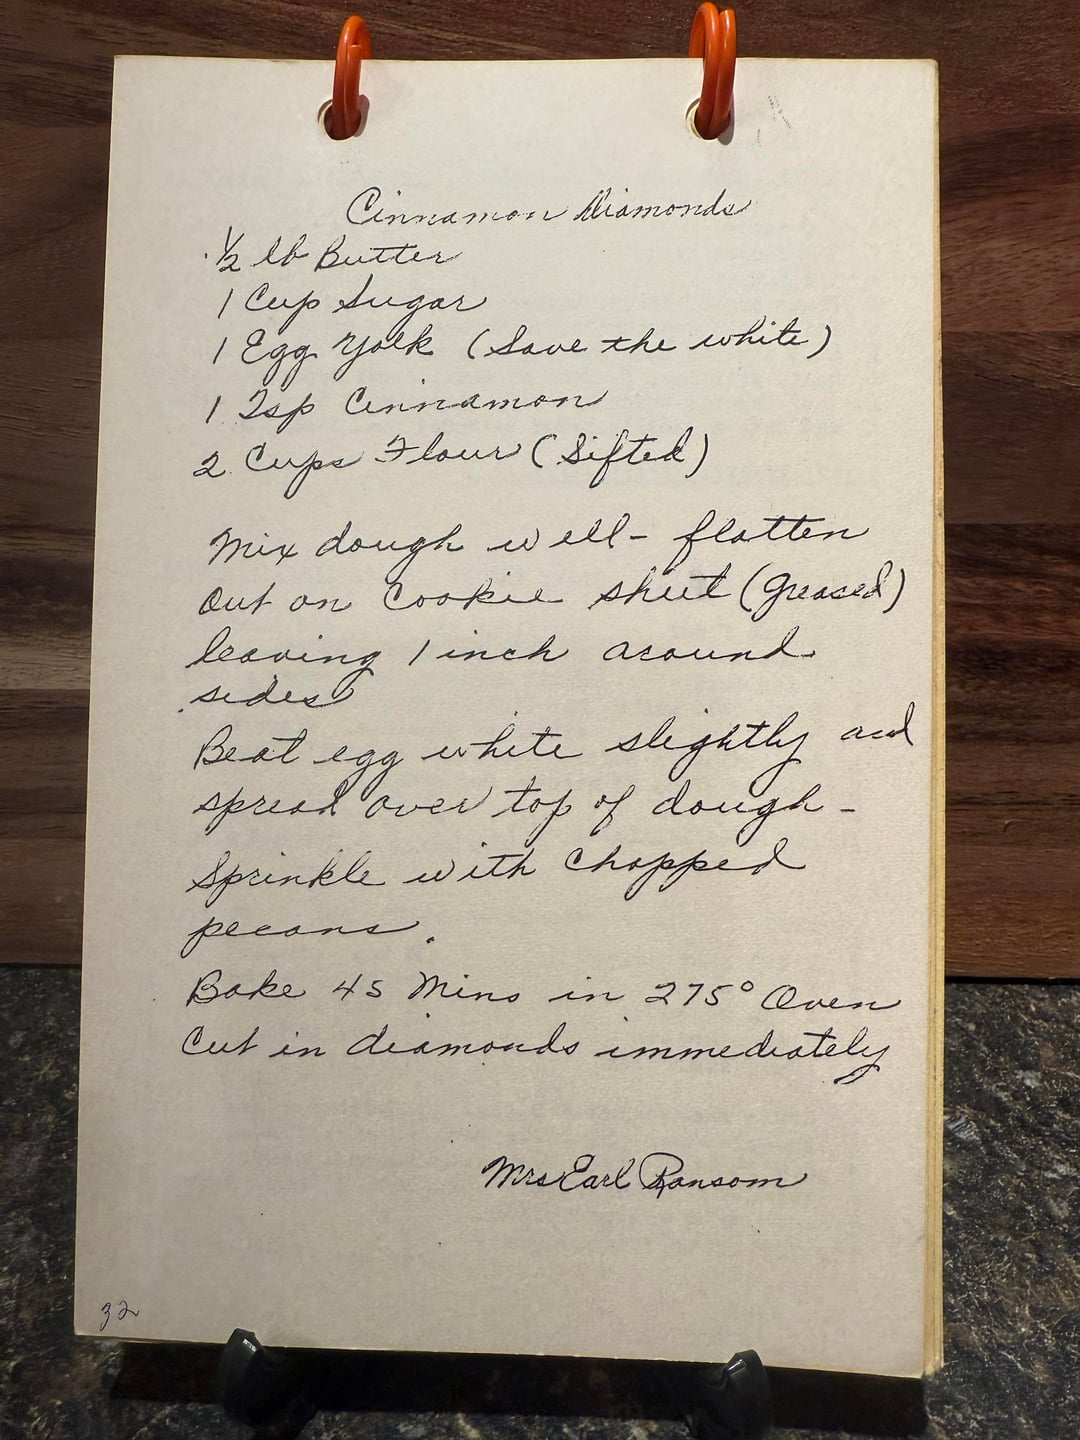 Cinnamon Diamonds
1/2 lb Butter
1 Cup Sugar
1 Egg Yolk (Save the white)
1 Tsp Cinnamon
2 Cups Flour (Sifted)
Mix dough well - flatten
out on cookie sheet (greased)
leaving 1 inch around
sides
Beat egg white slightly and
spread over top of dough -
Sprinkle with chopped
pecans.
Bake 45 Mins in 275° Oven
Cut in diamonds immediately
Mrs Earl Ransom
32